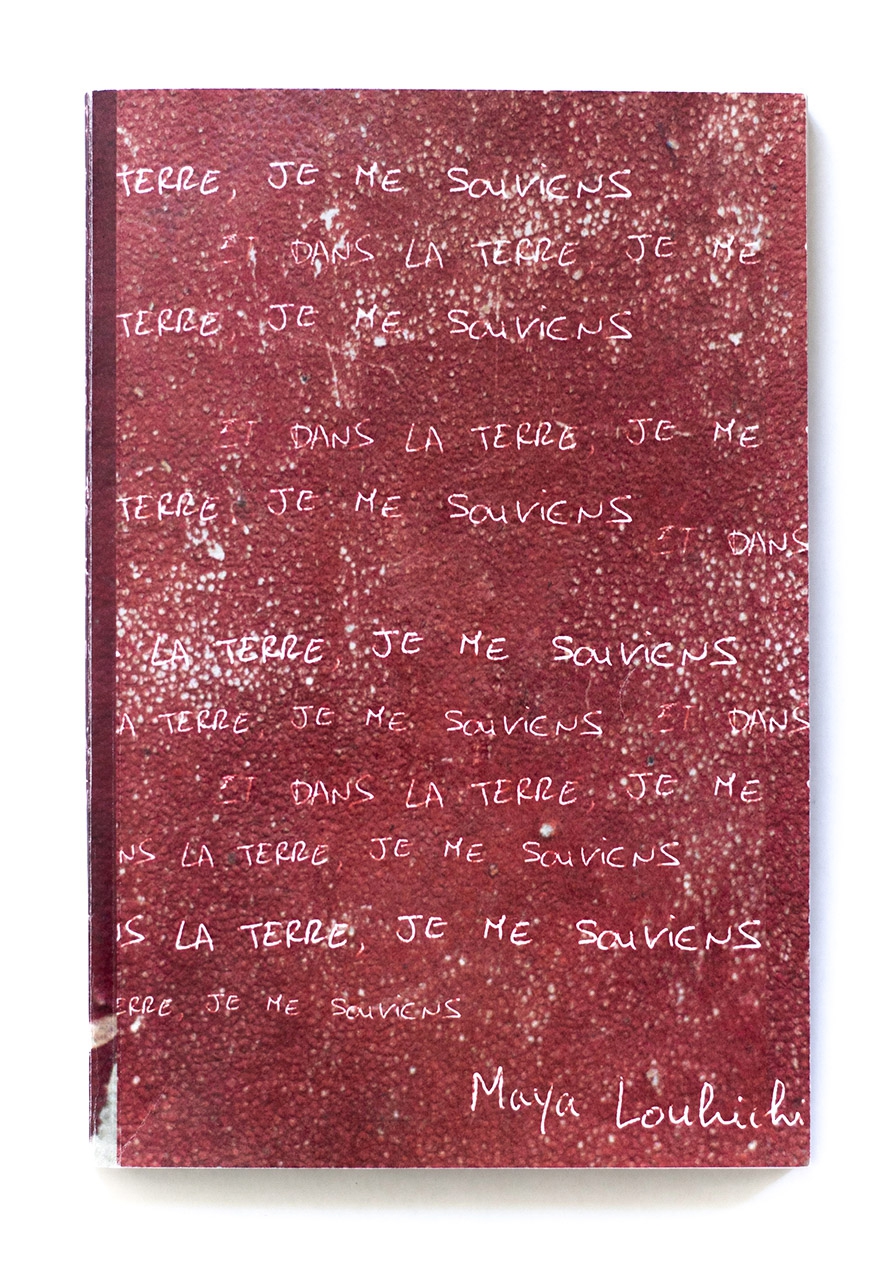 TERRE, JE ME SOUVIENS
ET DANS LA TERRE JE ME
TERRE, JE ME SOUVIENS
ET DANS LA TERRE, JE ME
TERRE JE ME SOUVIENS
ET DANS
LA TERRE, JE ME SOUVIENS
LA TERRE JE ME SOUVIENS ET DANS
ET DANS LA TERRE, JE ME
NS LA TERRE, JE ME SOUVIENS
NS LA TERRE, JE ME SOUVIENS
ERRE, JE ME SOUVIENS
Maya Louhichi